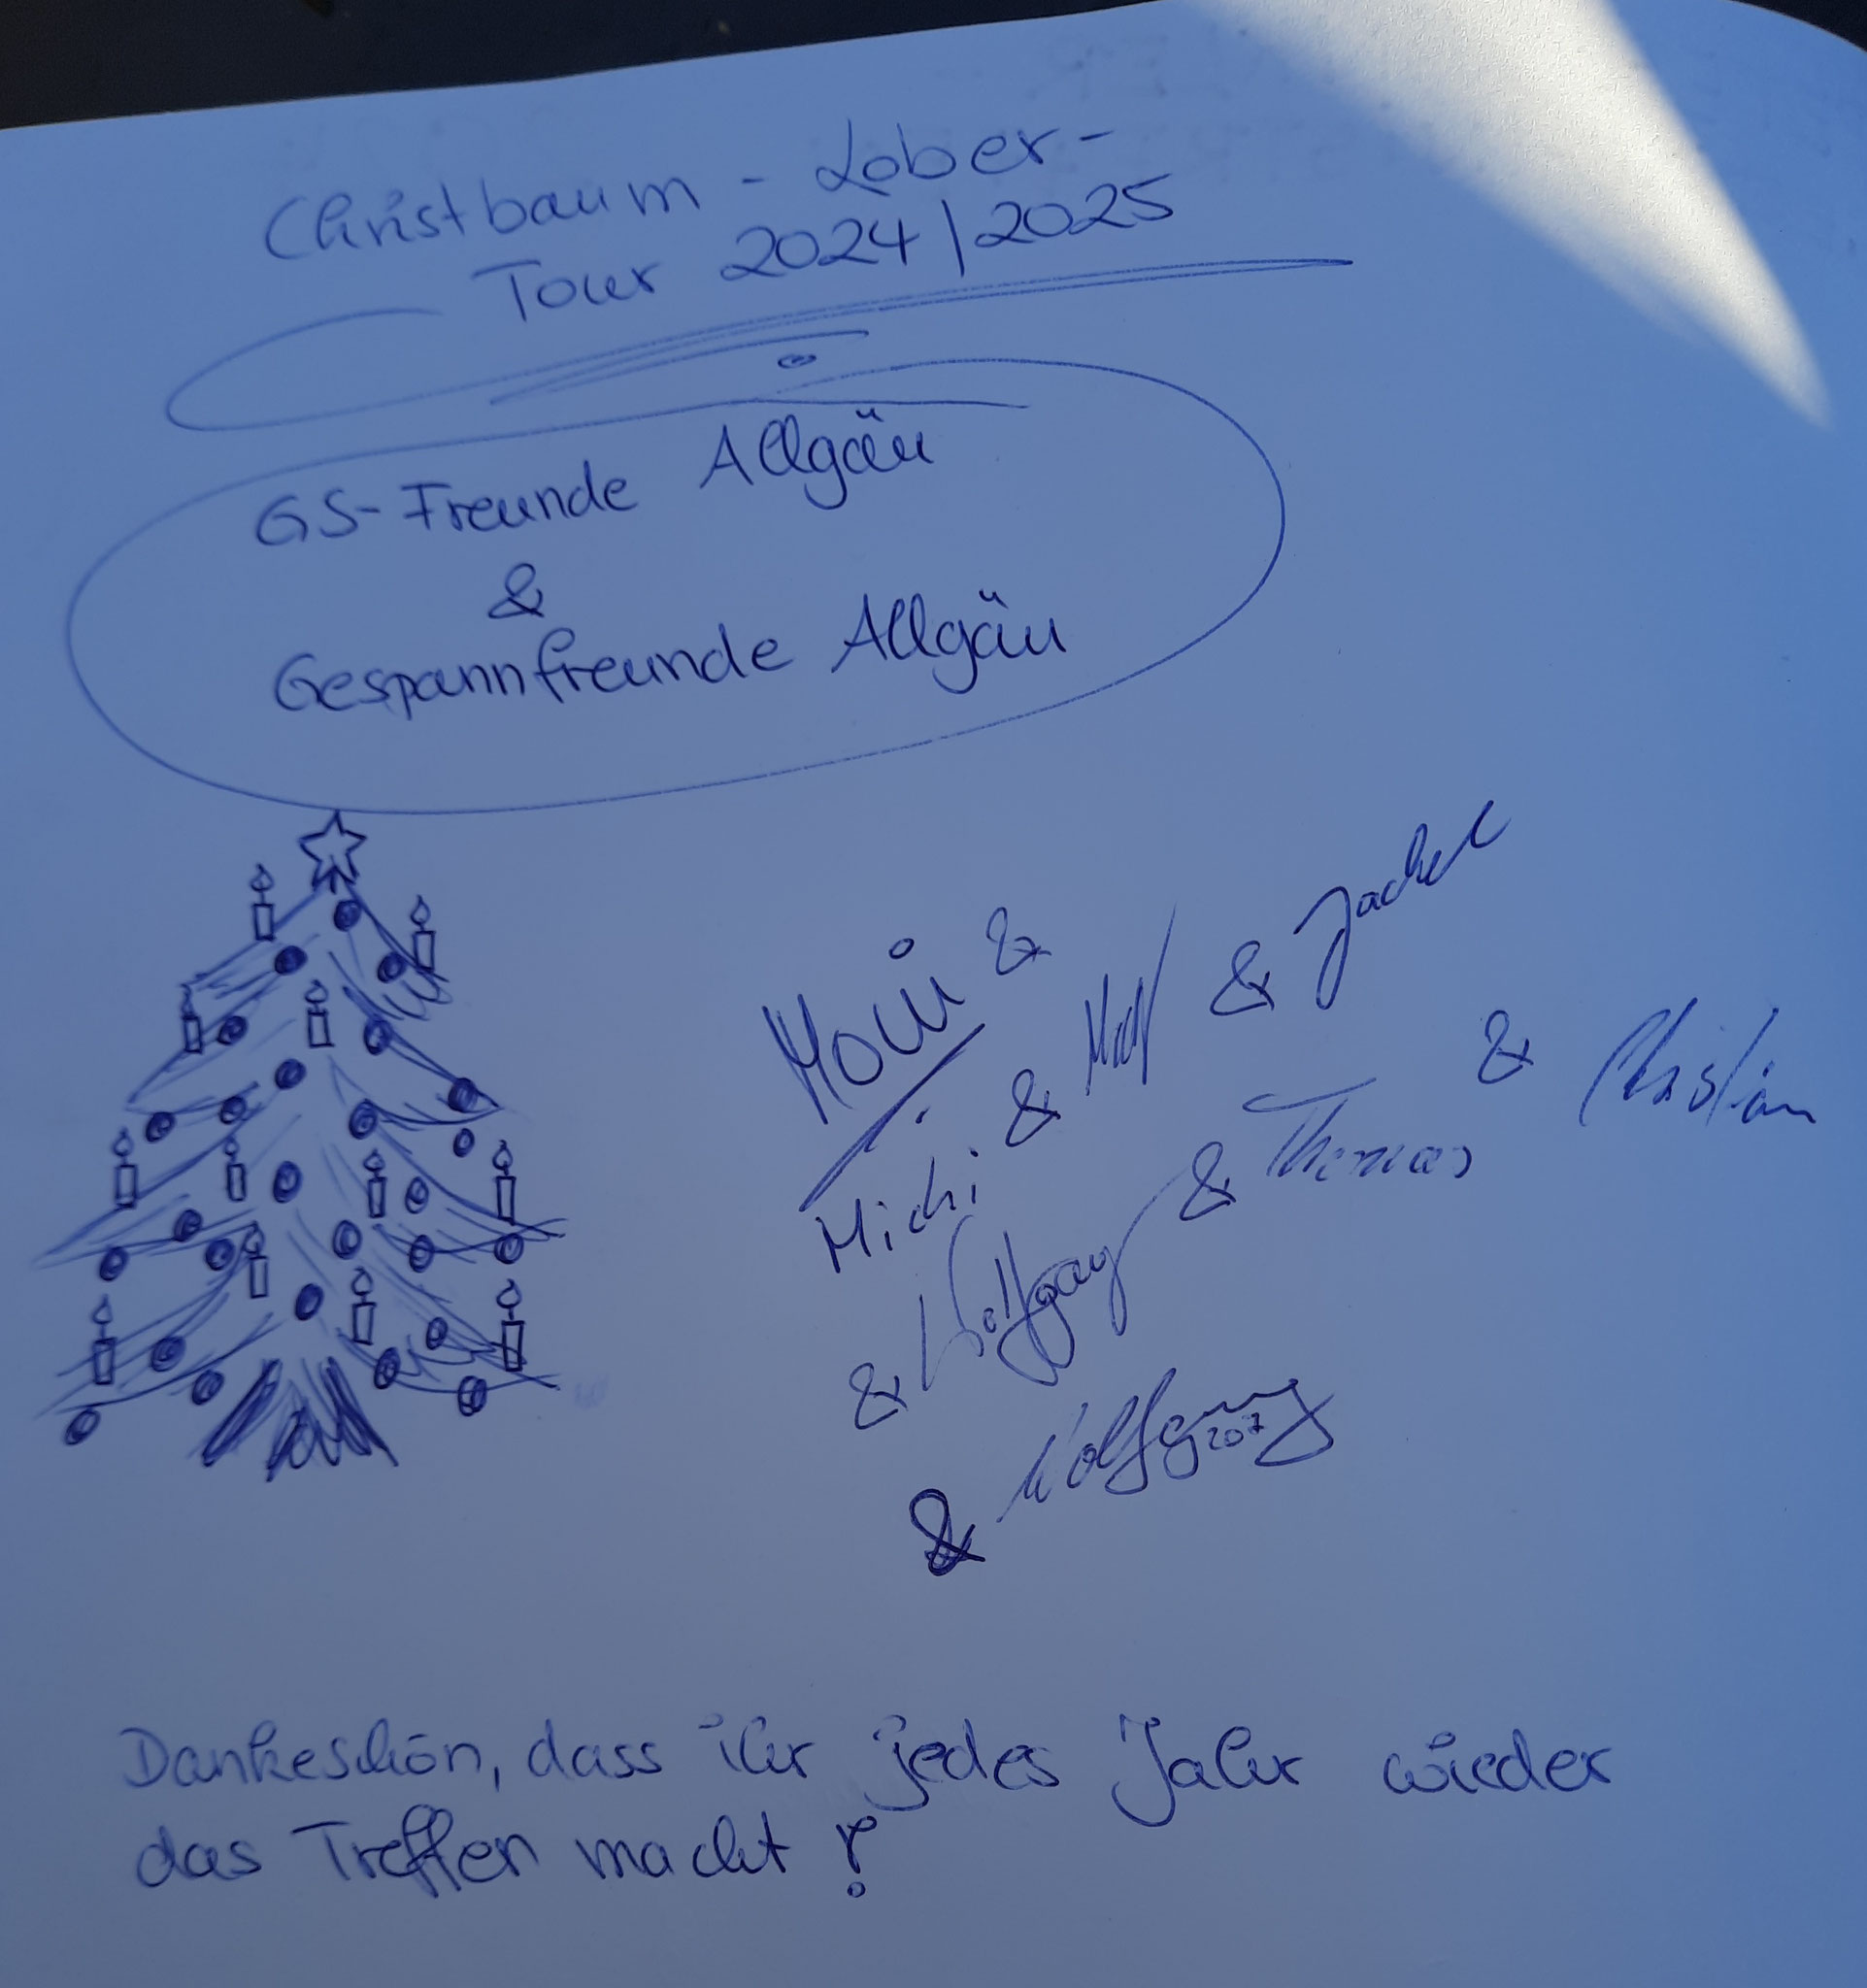 Christbaum - Lober-
Tour 2024 | 2025
GS-Freunde Allgäu
&
Gespannfreunde Allgäu
&
Michi & & Jackel
& Wolfgang & Thomas & Christian
& Wolfgang
Dankeschön, dass ihr jedes Jahr wieder
das Treffen macht!